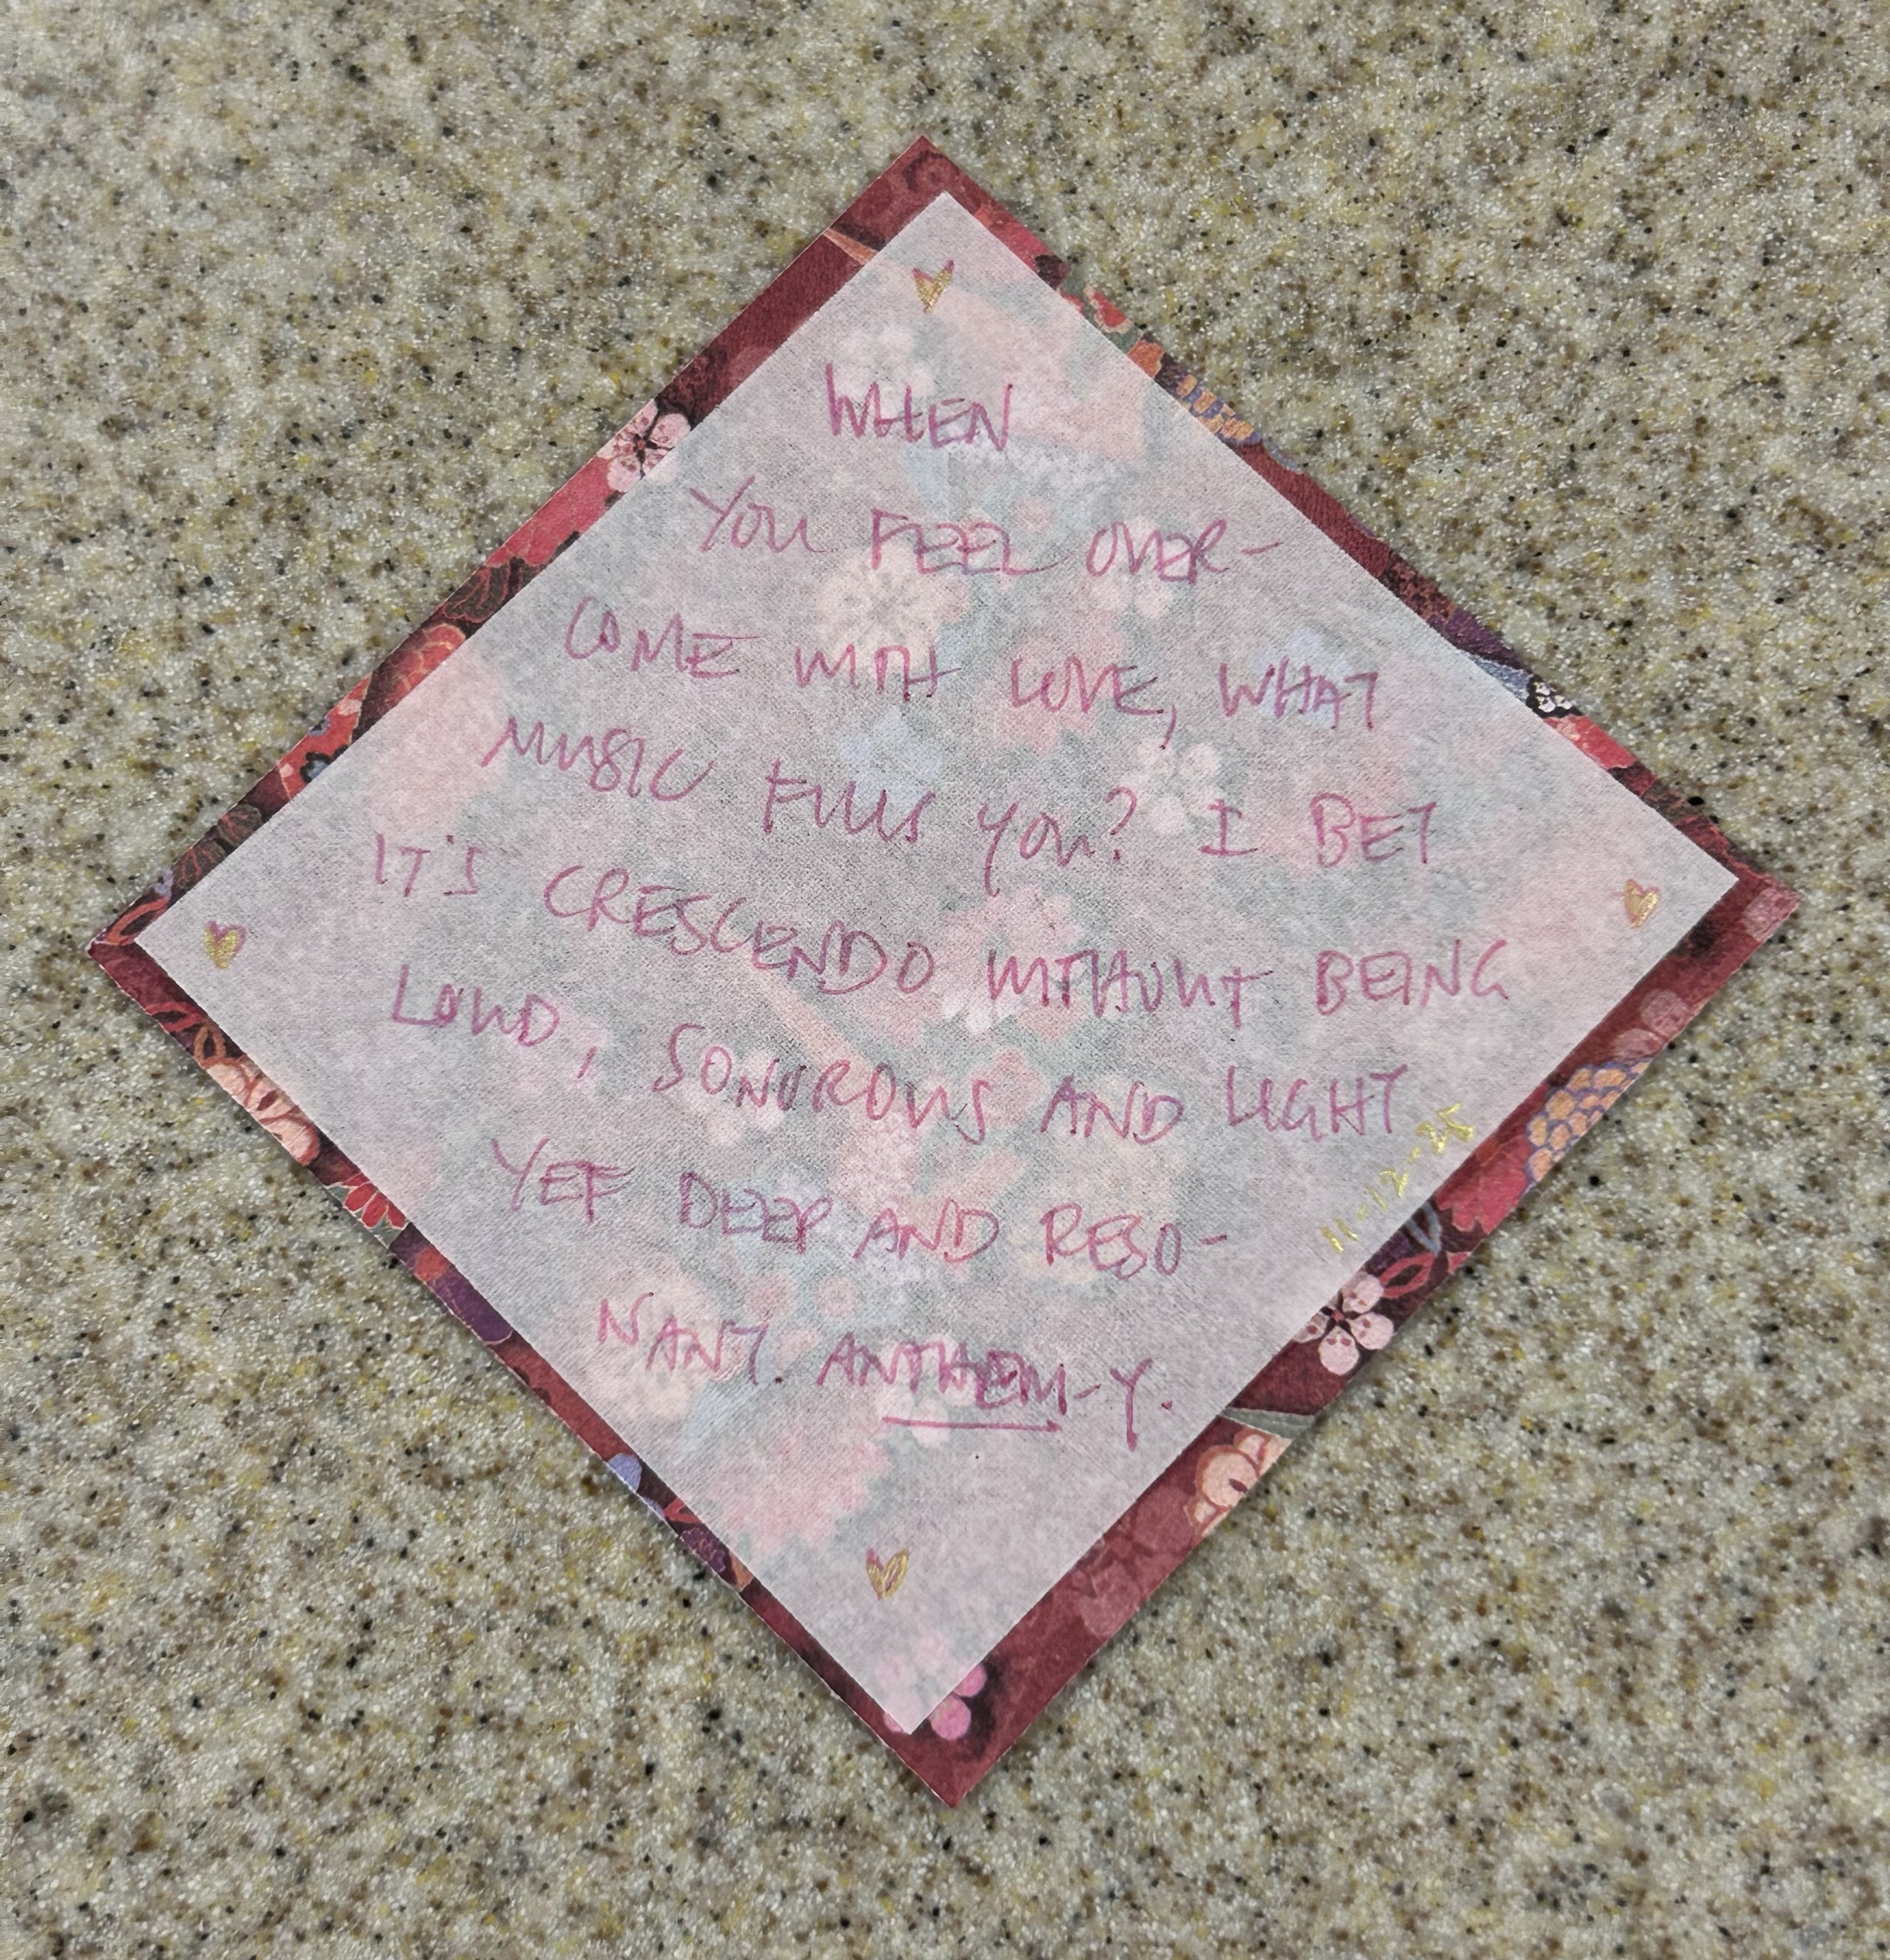 WHEN
YOU FEEL OVER-
COME WITH LOVE, WHAT
MUSIC FILLS YOU? I BET
IT'S CRESCENDO WITHOUT BEING
LOUD, SONOROUS AND LIGHT
YET DEEP AND RESO-
NANT. ANTHEM-Y.
11-12-25